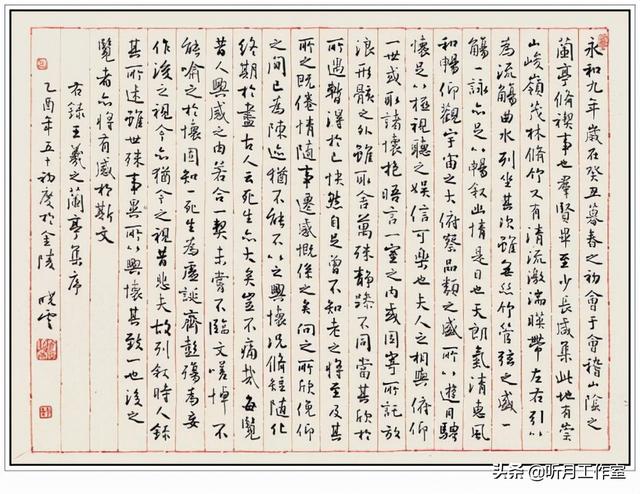 永和九年歲在癸丑暮春之初會于會稽山陰之
蘭亭脩禊事也羣賢畢至少長咸集此地有崇
山峻嶺茂林脩竹又有清流激湍暎帶左右引以
為流觴曲水列坐其次雖無絲竹管弦之盛一
觴一詠亦足以暢敘幽情是日也天朗氣清惠風
和暢仰觀宇宙之大俯察品類之盛所以遊目騁
懷足以極視聽之娛信可樂也夫人之相與俯仰
一世或取諸懷抱晤言一室之內或因寄所託放
浪形骸之外雖取舍萬殊靜躁不同當其欣於
所遇暫得於己快然自足曾不知老之將至及其
所之既倦情隨事遷感慨係之矣向之所欣俛仰
之間已為陳迹猶不能不以之興懷況脩短隨化
終期於盡古人云死生亦大矣豈不痛哉每覽
昔人興感之由若合一契未嘗不臨文嗟悼不
能喻之於懷固知一死生為虛誕齊彭殤為妄
作後之視今亦猶今之視昔悲夫故列敘時人錄
其所述雖世殊事異所以興懷其致一也後之
覽者亦將有感於斯文
右錄王羲之蘭亭集序
乙酉年五十初度於金陵 曉雲
头条 @听月工作室